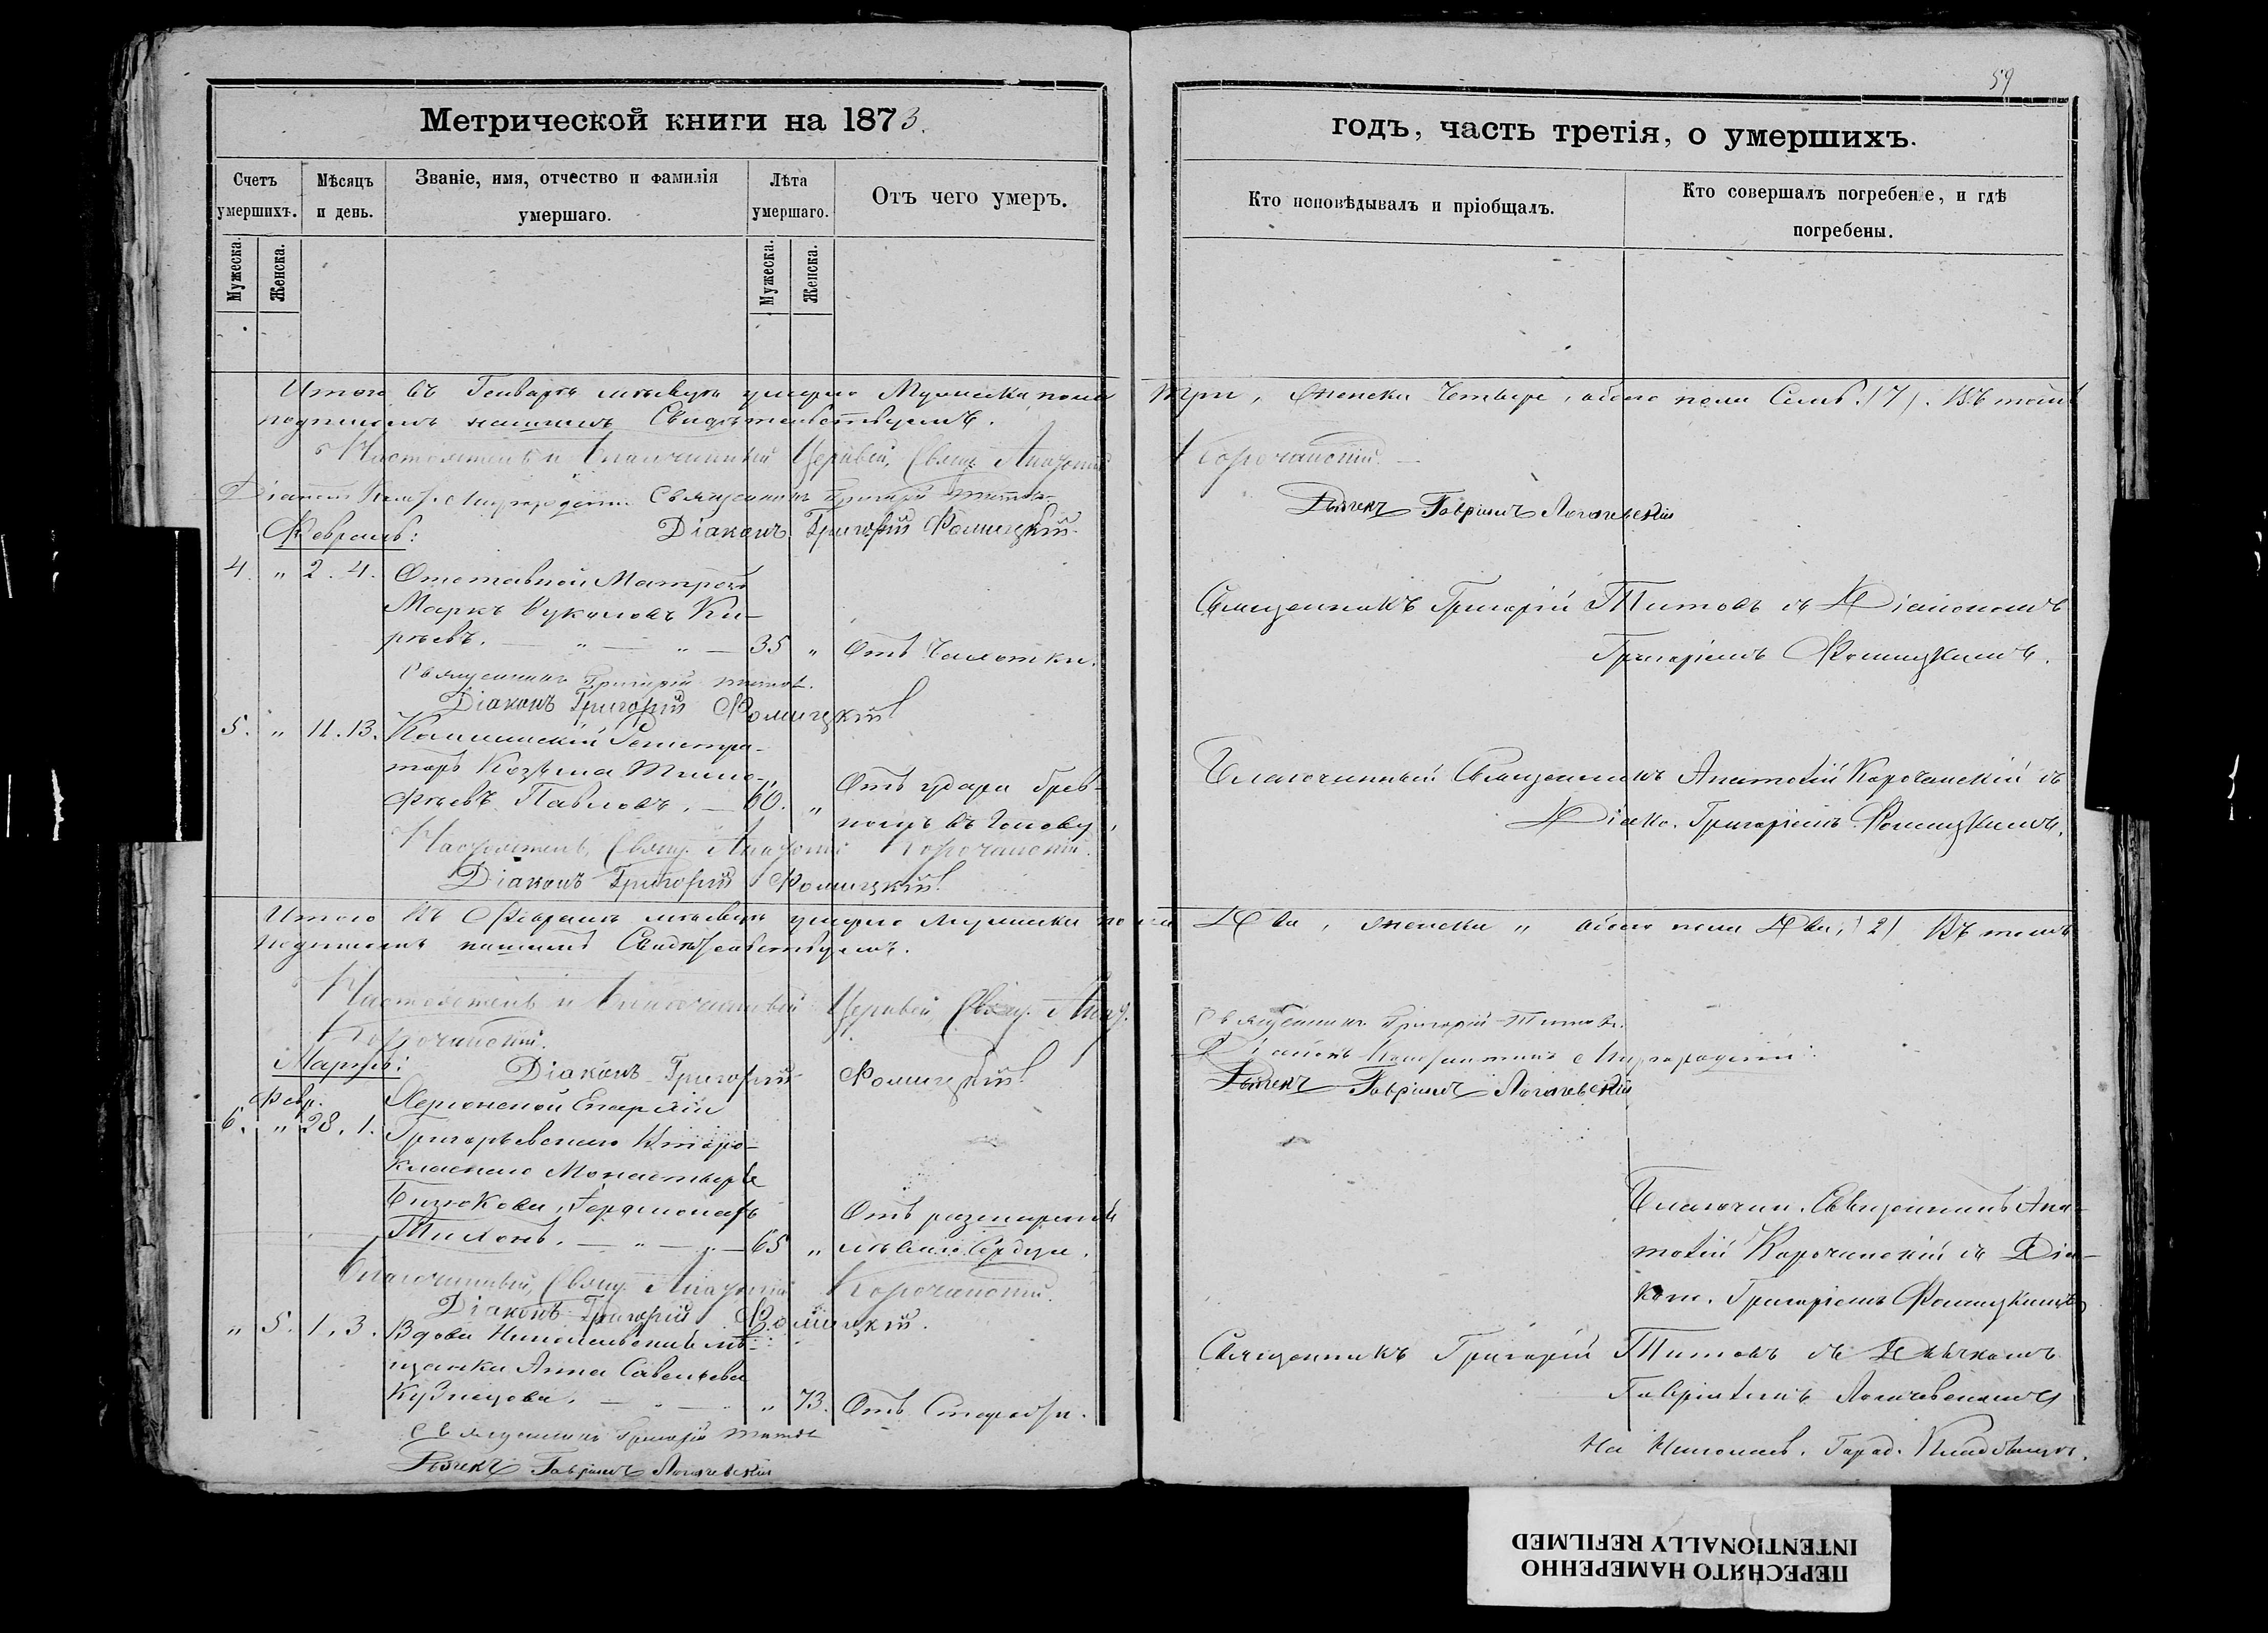 59
Метрической книги на 1873.
годъ, часть третія, о умершихъ.
Счетъ умершихъ.
Мѣсяцъ и день.
Званіе, имя, отчество и фамилія умершаго.
Лѣта умершаго.
Отъ чего умеръ.
Кто исповѣдывалъ и пріобщалъ.
Кто совершалъ погребеніе, и гдѣ погребены.
Мужеска.
Женска.
Мужеска.
Женска.
Итого въ Генварѣ мѣсяцѣ умерло Мужеска пола три, Женска Четыре, обоего пола Семь (7). Въ томъ
подписомъ нашимъ Свидѣтельствуемъ.
Настоятель и Благочинный Церквей, Свящ. Анатолій Корочанскій.
Діаконъ Священникъ Григорій Титовъ
Дьячекъ Гавріилъ Логачевскій
Февраль:
Діаконъ Григорій Фомицкій.
4. " 2. 4. Отставной Матросъ
Маркъ Вуколовъ Ки-
рѣевъ. — " — " — 35 " Отъ Чахотки.
Священникъ Григорій Титовъ съ Діакономъ
Григоріемъ Фомицкимъ.
Священникъ Григорій Титовъ.
Діаконъ Григорій Фомицкій
5. " 11. 13. Коллежскій Регистра-
торъ Козьма Тимо-
фѣевъ Павловъ. — 60. " Отъ удара брев-
номъ въ Голову.
Благочинный Священникъ Анатолій Корочанскій съ
Діако. Григоріемъ Фомицкимъ.
Настоятель, Свящ. Анатолій Корочанскій.
Діаконъ Григорій Фомицкій.
Итого въ Февралѣ мѣсяцѣ умерло Мужеска пола Два, Женска " обоего пола Два, (2) Въ томъ
подписомъ нашимъ Свидѣтельствуемъ.
Настоятель и Благочинный Церквей, Свящ. Анат.
Корочанскій.
Священникъ Григорій Титовъ.
Діаконъ
Дьячекъ Гавріилъ Логачевскій
Мартъ:
Діаконъ Григорій Фомицкій
Февр.
6. " 28. 1. Херсонской Епархіи
Григорьевского Второ-
класнаго Монастыря
Бизюкова, Іеромонахъ
Тихонъ. — " — " — 65 " Отъ разширенія
лѣваго Сердца.
Благочин. Священникъ Ана-
толій Корочанскій съ Діа-
кон. Григоріемъ Фомицкимъ
Благочинный, Свящ. Анатолій Корочанскій.
Діаконъ Григорій Фомицкій.
" 5. 1. 3. Вдова Николаевская мѣ-
щанка Анна Савельева
Кузнецова. — " — " 73. Отъ Старости.
Священникъ Григорій Титовъ съ Дьячкомъ
Гавріиломъ Логачевскимъ
На Николаев. Город. Кладбищѣ.
Священникъ Григорій Титовъ
Дьячекъ Гавріилъ Логачевскій
ПЕРЕСНЯТО НАМЕРЕННО
INTENTIONALLY REFILMED